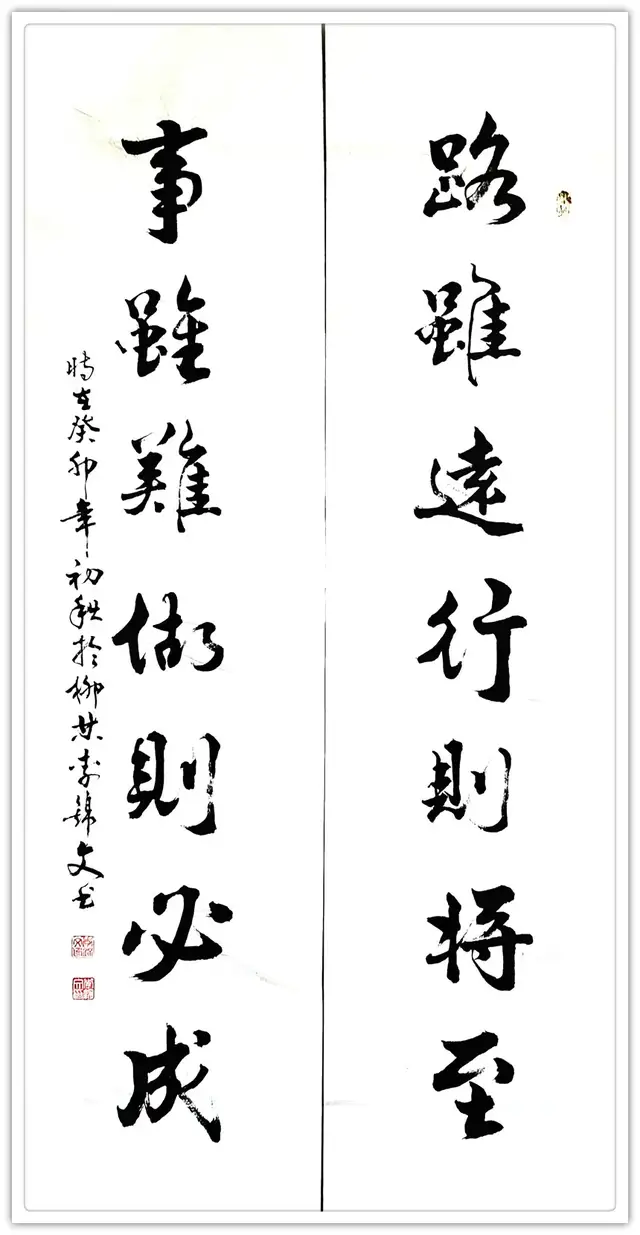 路雖遠行則将至
事雖難做則必成
時在癸卯年初秋於柳林李錦文书